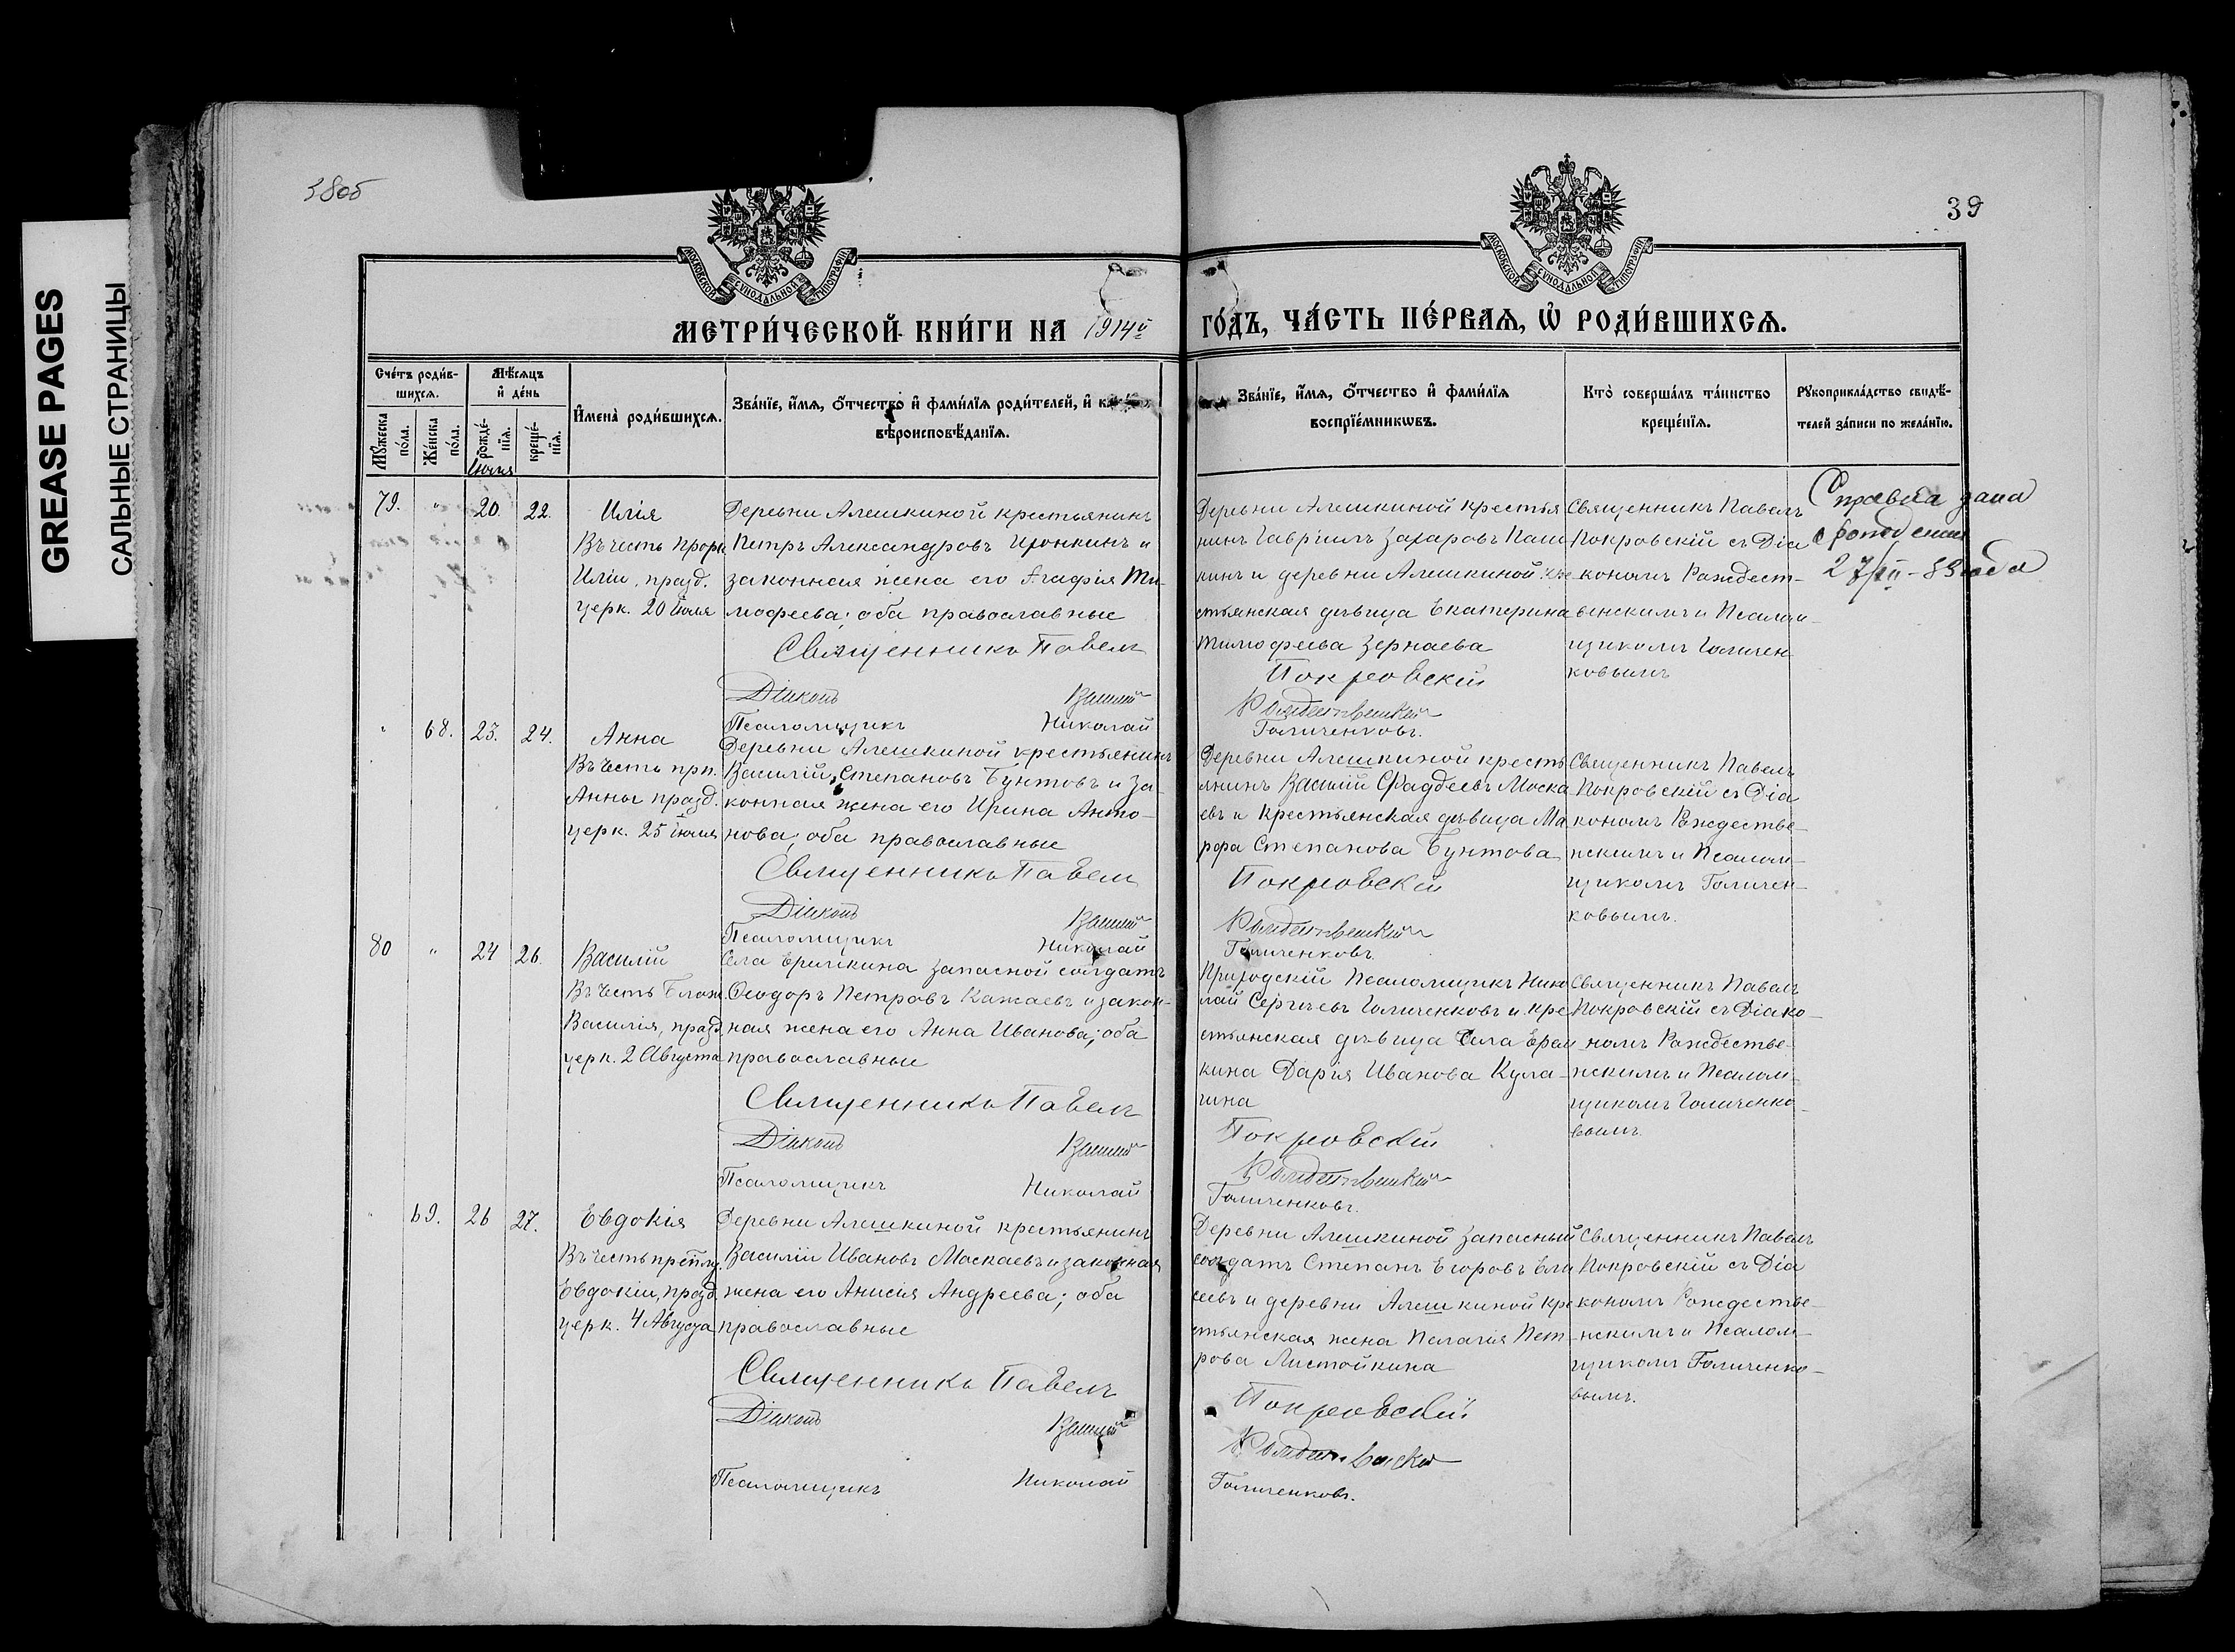 GREASE PAGES
САЛЬНЫЕ СТРАНИЦЫ
38об
39
МОСКОВСКОЙ СУНОДАЛЬНОЙ ТИПОГРАФІИ
МОСКОВСКОЙ СУНОДАЛЬНОЙ ТИПОГРАФІИ
МЕТРИ́ЧЕСКОЙ КНИ́ГИ НА 1914й
ГО́ДЪ, ЧА́СТЬ ПЕ́РВАѦ, Ѡ҆ РОДИ́ВШИХСѦ.
Сче́тъ роди́в-
шихсѧ.
Мꙋжеска по́ла.
Же́нска по́ла.
Мѣ́сѧцъ
и҆ де́нь
рожде́-нїѧ.
креще́-нїѧ.
И҆мена̀ роди́вшихсѧ.
Зва́нїе, и҆́мѧ, ѻ҆́тчество и҆ фами́лїѧ роди́телей, и҆
вѣроисповѣ́данїѧ.
Зва́нїе, и҆́мѧ, ѻ҆́тчество и҆ фами́лїѧ
воспрїе́мникѡвъ.
Кто̀ соверша́лъ та́инство
креще́нїѧ.
Рꙋкоприкла́дство свидѣ́-
телей за́писи по жела́нїю.
Іюля
79. " 20. 22.
Илія
Въ честь прор.
Иліи, празд.
церк. 20 Іюля
Деревни Алешкиной крестьянинъ
Петръ Александровъ и
законная жена его Агафія Ти-
мофеева; оба православные
Священникъ Павелъ
Діаконъ Василій
Псаломщикъ Николай
Деревни Алешкиной крестья
нинъ Гавріилъ Захаровъ Паш
кинъ и деревни Алешкиной кре
стьянская дѣвица Екатерина
Тимофеева Зернаева
Покровскій
Рождественскій
Голиченковъ.
Священникъ Павелъ
Покровскій съ Діа
кономъ Рождест-
венскимъ и Псалом-
щикомъ Голичен
ковымъ
Справка дана
о рождении
27/ - 83 года
" 68. 23. 24.
Анна
Въ честь прп.
Анны празд.
церк. 25 іюля
Деревни Алешкиной крестьянинъ
Василій Степановъ Бунтовъ и за-
конная жена его Ирина Анто-
нова, оба православные
Священникъ Павелъ
Діаконъ Василій
Псаломщикъ Николай
Деревни Алешкиной кресть
янинъ Василій Фаддеевъ Моска
евъ и крестьянская дѣвица Ма
рфа Степанова Бунтова
Покровскій
Рождественскій
Голиченковъ.
Священникъ Павелъ
Покровскій съ Діа
кономъ Рождестве-
нскимъ и Псалом-
щикомъ Голичен-
ковымъ.
80 " 24 26.
Василій
Въ честь Блаж.
Василія, празд.
церк. 2 Августа
Села запасной солдатъ
Ѳеодоръ Петровъ Кажаевъ и закон-
ная жена его Анна Иванова; оба
православные
Священникъ Павелъ
Діаконъ Василій
Псаломщикъ Николай
Приходскій Псаломщикъ Нико
лай Сергѣевъ Голиченковъ и кре
стьянская дѣвица Села
кина Дарія Иванова Кула-
гина
Покровскій
Рождественскій
Голиченковъ.
Священникъ Павелъ
Покровскій съ Діако-
номъ Рождестве-
нскимъ и Псалом-
щикомъ Голиченко-
вымъ.
" 69. 26 27.
Евдокія
Въ честь препмц.
Евдокіи, празд.
церк. 4 Августа
Деревни Алешкиной крестьянинъ
Василій Ивановъ Москаевъ и законная
жена его Анисія Андреева; оба
православные
Священникъ Павелъ
Діаконъ Василій
Псаломщикъ Николай
Деревни Алешкиной запасный
солдатъ Степанъ Егоровъ Ели
сеевъ и деревни Алешкиной кре
стьянская жена Пелагія Пет-
рова Листойкина
Покровскій
Рождественскій
Голиченковъ.
Священникъ Павелъ
Покровскій съ Діа
кономъ Рождестве-
нскимъ и Псалом-
щикомъ Голиченко-
вымъ.